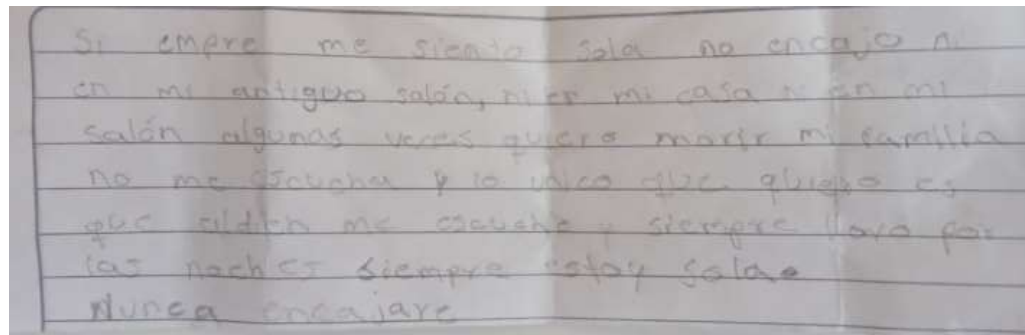 Si empre me siento sola no encajo ni
en mi antiguo salón, ni en mi casa ni en mi
salón algunas veces quiero morir mi familia
no me escucha y lo unico que quiero es
que alguien me escuche y siempre lloro por
las noches siempre estoy sola
Nunca encajare